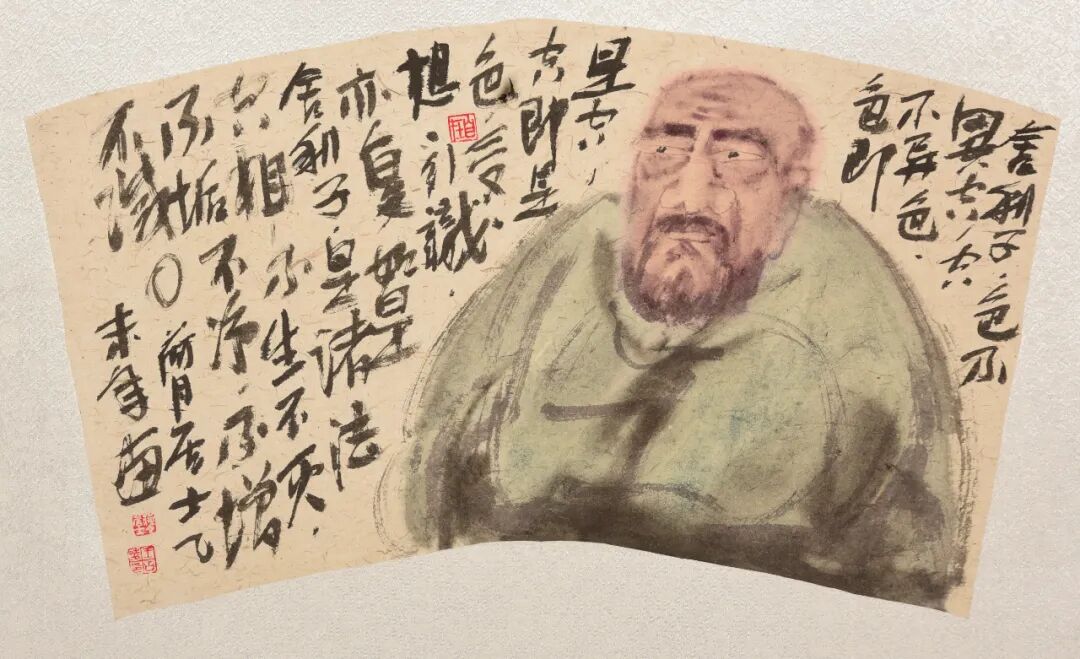 舍利子色不
異空空
不异色
色即
是空
空即是
色受
想行識
亦复如是
舍利子是诸法
空相不生不灭
不垢不净不增
不減
月居士乙
未年画